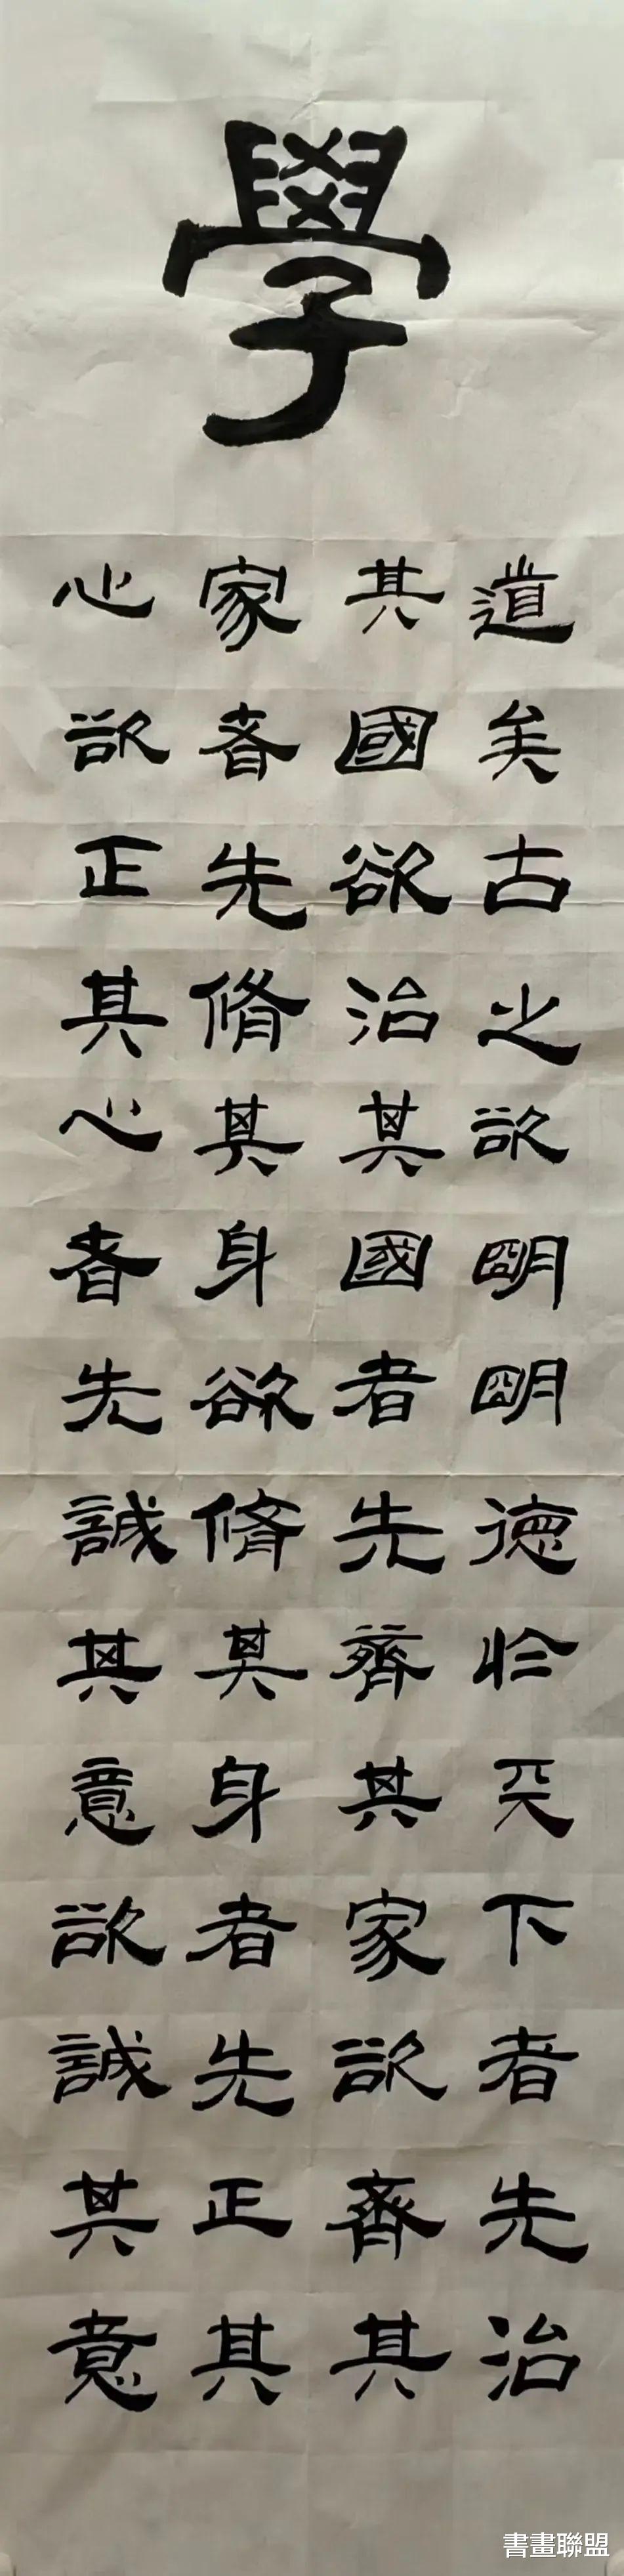 學
道矣古之欲明明德於天下者先治
其國欲治其國者先齊其家欲齊其
家者先脩其身欲脩其身者先正其
心欲正其心者先誠其意欲誠其意
書畫聯盟